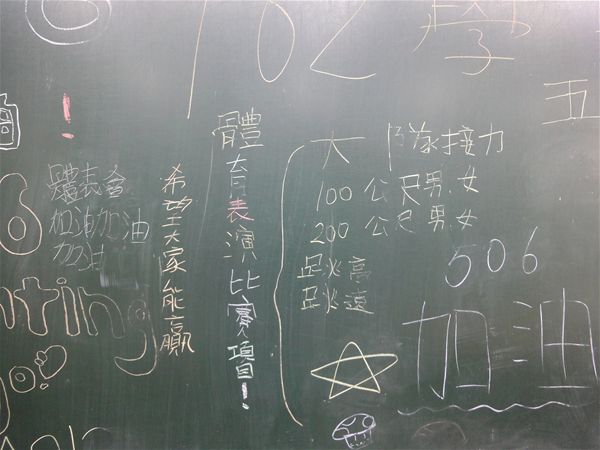 102 學
五
!
體表會
加油加油
加油
希望大家能贏
體育表演比賽項目!
大隊接力
100公尺男.女
200公尺男.女
跳高
跳遠
506
加油
6
hting
go!